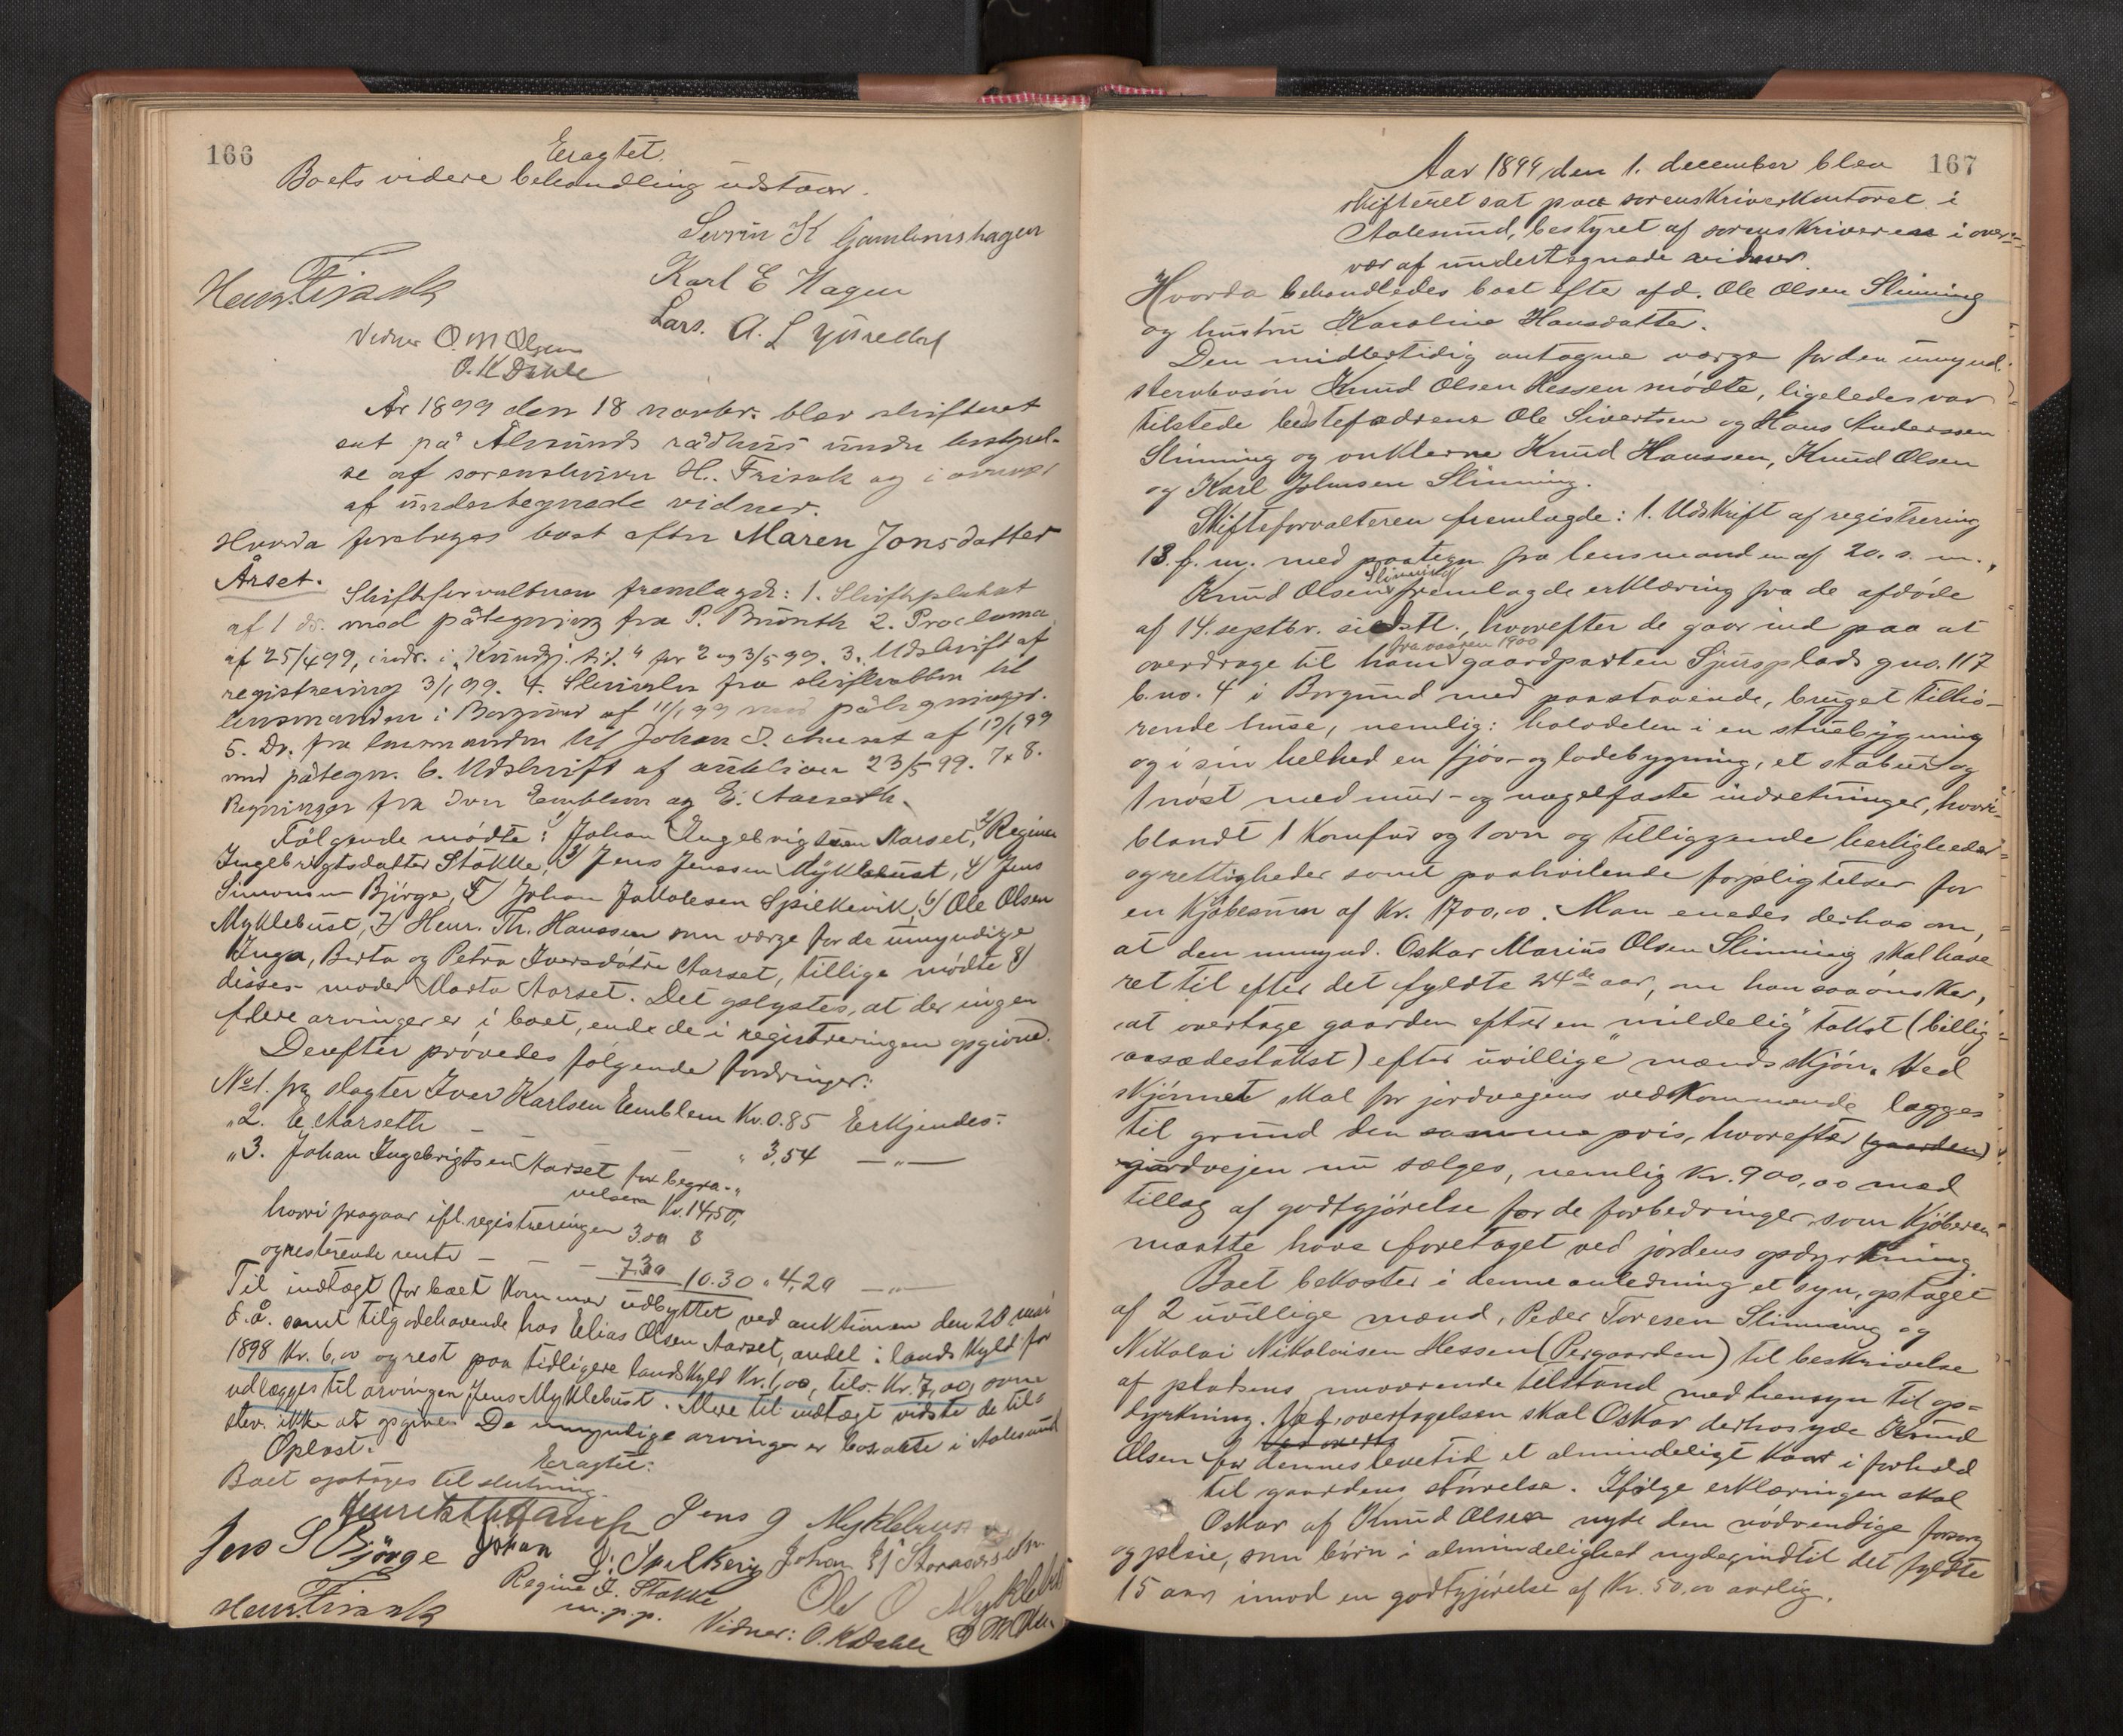 166
Eragtet.
Boets videre behandling udstaar.
Karl E Hagen
Lars. A.
Vidner O. M Olsen
O. K Dahle
År 1899 den 18 novbr. blev skifteret
sat på Ålesunds rådhus under bestyrel-
se af sorenskriver H. Frisak og i overvær
af undertegnede vidner.
Hvorda foretoges boet efter Maren Jonsdatter
Årset.
Skifteforvalteren fremlagde: 1. Skifteplakat
af 1 ds. med påtegning fra P. Brünth 2. Proclama
af 25/4 99, indr. i „Kundgj. tid." for 2 og 3/5 99. 3. Udskrift af
registrering 3/1 99. 4. Skrivelse fra skifteretten til
lensmanden i Borgund af 11/1 99 med påtegninger.
5. Do. fra lensmanden til Johan I. Aarset af 12/1 99
med påtegn. 6. Udskrift af auktion 23/5 99. 7 & 8.
Regninger fra Iver Emblem og E. Aarseth.
Følgende mødte: 1) Johan Ingebrigtsen Aarset, 2) Regine
Ingebrigtsdatter Stokke, 3) Jens Jenssen Myklebust, 4) Jens
Simonsen Bjørge, 5) Johan Jakobsen Spilkevik, 6) Ole Olsen
Myklebust, 7) Henr. Th. Hanssen som værge for de umyndige
Inga, Berta og Petra Iversdøtre Aarset, tillige mødte 8)
disses moder Marta Aarset. Det oplystes, at der ingen
flere arvinger er i boet, end de i registreringen opgivne.
Derefter prøvedes følgende fordringer:
No 1. fra slagter Iver Karlsen Emblem Kr. 0.85 Erkjendes.
„ 2. E. Aarseth — „ 3,54 — „ —
„ 3. Johan Ingebrigtsen Aarset for begra-
velsen Kr. 14,50,
hvori fragaar ifl. registreringen 3.00
og resterende rente — 7.30 10.30 „ 4,20 — „ —
Til indtægt for boet kommer udbyttet ved auktionen den 20 mai
d. å. samt tilgodehavende hos Elias Olsen Aarset, andel i landskyld for
1898 Kr. 6,00 og rest paa tidligere landskyld Kr. 1,00, tils. Kr. 7,00, som
udlægges til arvingen Jens Myklebust. Mere til indtægt vidste de til-
stev. ikke at opgive. De umyndige arvinger er bosatte i Aalesund
Oplæst.
Eragtet:
Boet optages til slutning.
Jens J Myklebust
Jens S Bjørge Johan J. Spilkevig Johan
Regine I. Stokke
m. p. p.
Ole O Myklebust
Vidner: O. K Dahle
167
Aar 1899 den 1. december blev
skifteret sat paa sorenskriverkontoret i
Aalesund, bestyret af sorenskriveren i over-
vær af undertegnede vidner.
Hvorda behandledes boet efter afd. Ole Olsen Slinning
og hustru Karoline Hansdatter.
Den midlertidig antagne værge for den umynd.
stervbosøn Knud Olsen Hessen mødte, ligeledes var
tilstede bedstefædrene Ole Sivertsen og Hans Anderssen
Slinning og onklerne Knud Hanssen, Knud Olsen
og Karl Johnsen Slinning.
Skifteforvalteren fremlagde: 1. Udskrift af registrering
13. f. m. med paategn fra lensmanden af 20. s. m.,
Knud Olsen Slinning fremlagde erklæring fra de afdøde
af 14. septbr. sidstl., hvorefter de gaar ind paa at
overdrage til ham fra vaaren 1900 gaardparten Sjursplads gno. 117
b. no. 4 i Borgund med paastaaende, bruget tilhø-
rende huse, nemlig: halvdelen i en stuebygning
og i sin helhed en fjøs- og ladebygning, et stabur og
1 nøst med mur- og nagelfaste indretninger, hvori-
blandt 1 Komfur og 1 ovn og tilliggende herligheder
og rettigheder samt paahvilende forpligtelser for
en Kjøbesum af Kr. 1700,00. Man enedes derhos om,
at den umynd. Oskar Marius Olsen Slinning skal have
ret til efter det fyldte 24de aar, om han saa ønsker,
at overtage gaarden efter en „mildelig" takst (billig
aasædestakst) efter uvillige mænds skjøn. Ved
skjønnet skal for jordvejens vedkommende lægges
til grund den samme pris, hvorefter (gaarden)
jordvejen nu sælges, nemlig Kr. 900,00 med
tillæg af godtgjørelse for de forbedringer, som Kjøberen
maatte have foretaget ved jordens opdyrkning.
Boet bekoster i denne anledning et syn, optaget
af 2 uvillige mænd, Peder Toresen Slinning og
Nikolai Nikolaisen Hessen (Pergaarden) til beskrivelse
af pladsens nuværende tilstand med hensyn til op-
dyrkning. Ved overtagelsen skal Oskar derhos yde Knud
Olsen for dennes levetid et almindeligt Kaar i forhold
til gaardens størrelse. Ifølge erklæringen skal
Oskar af Knud Olsen nyde den nødvendige forsorg
og pleie, som børn i almindelighed nyder, indtil det fyldte
15 aar imod en godtgjørelse af Kr. 50,00 aarlig.